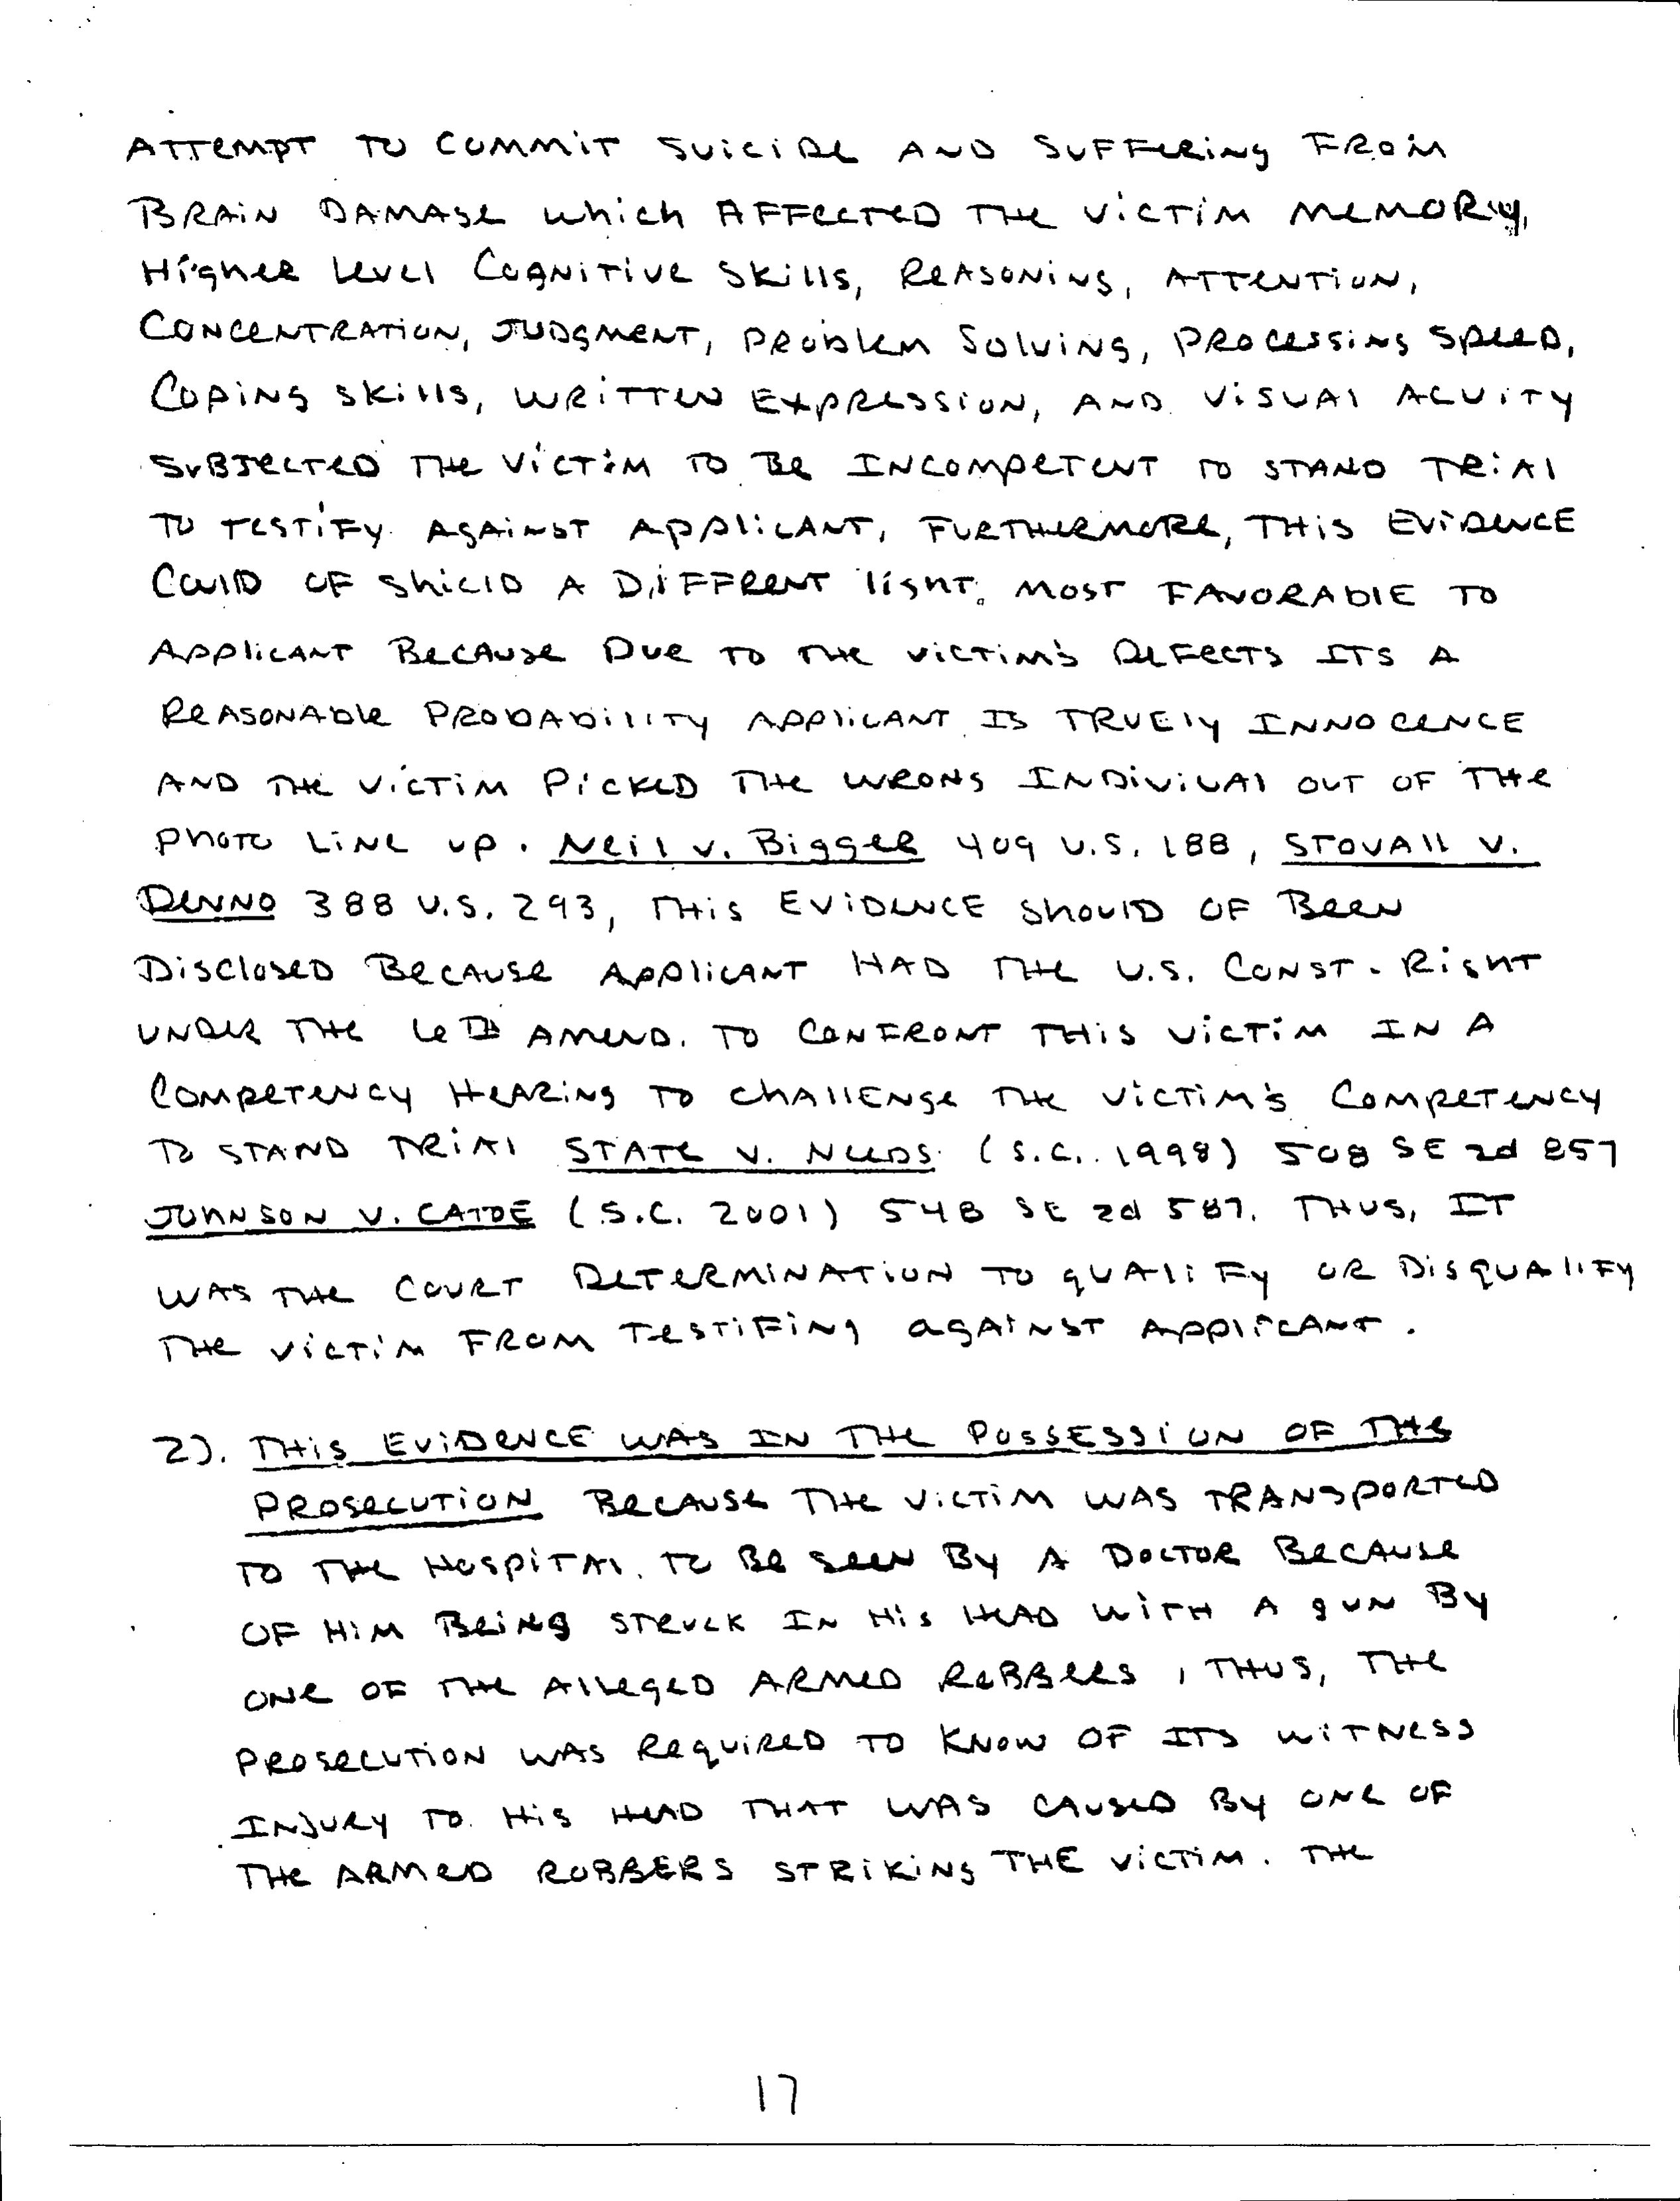 ATTEMPT TO COMMIT SUICIDE AND SUFFERING FROM
BRAIN DAMAGE which AFFECTED THE VICTIM MEMORY,
Higher level COGNITIVE SKills, REASONING, ATTENTION,
CONCENTRATION, JUDGMENT, PROblem Solving, PROCESSING SPEED,
COPING SKills, WRITTEN EXPRESSION, AND VISUAl ACUITY
SUBJECTED THE VICTIM TO BE INCOMPETENT TO STAND TRIAl
TO TESTIFY AGAINST APPliCANT, FURTHERMORE, THIS EVIDENCE
COUlD OF ShiElD A DIFFRENT light. MOST FAVORABlE TO
APPliCANT BECAUSE DUE TO THE VICTIM'S DEFECTS ITS A
REASONABle PROBABility APPliCANT IS TRUEly INNOCENCE
AND THE VICTIM PICKED THE WRONG INDIVIUAl OUT OF THE
PHOTO LINE UP. Neil v. Bigger 409 U.S. 188, STOVAll V.
DENNO 388 U.S. 293, THIS EVIDENCE ShOUlD OF BEEN
DISClOSED BECAUSE APPliCANT HAD THE U.S. CONST. RIGHT
UNDER THE 6th AMEND. TO CONFRONT THIS VICTIM IN A
COMPETENCY HEARING TO ChAllENGE THE VICTIM'S COMPETENCY
TO STAND TRIAl STATE V. NEEDS (S.C. 1998) 508 SE 2d 857
JOHNSON V. CATOE (S.C. 2001) 548 SE 2d 587. THUS, IT
WAS THE COURT DETERMINATION TO qUAliFy OR DISQUAliFY
THE VICTIM FROM TESTIFING AGAINST APPLICANT.
2). THIS EVIDENCE WAS IN THE POSSESSION OF THE
PROSECUTION BECAUSE THE VICTIM WAS TRANSPORTED
TO THE HOSPITAl. TO BE SEEN BY A DOCTOR BECAUSE
OF HIM BEING STRUCK IN HIS HEAD WITH A GUN BY
ONE OF THE AllEGED ARMED ROBBERS, THUS, THE
PROSECUTION WAS REQUIRED TO KNOW OF ITS WITNESS
INJURY TO HIS HEAD THAT WAS CAUSED BY ONE OF
THE ARMED ROBBERS STRIKING THE VICTIM. THE
17